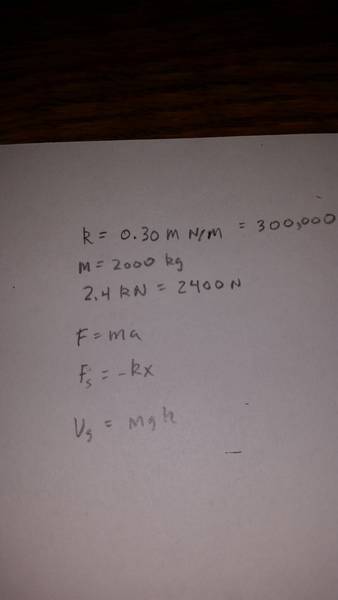 k = 0.30 m N/m = 300,000
m = 2000 kg
2.4 kN = 2400 N
F = ma
Fs = -kx
Ug = mgh